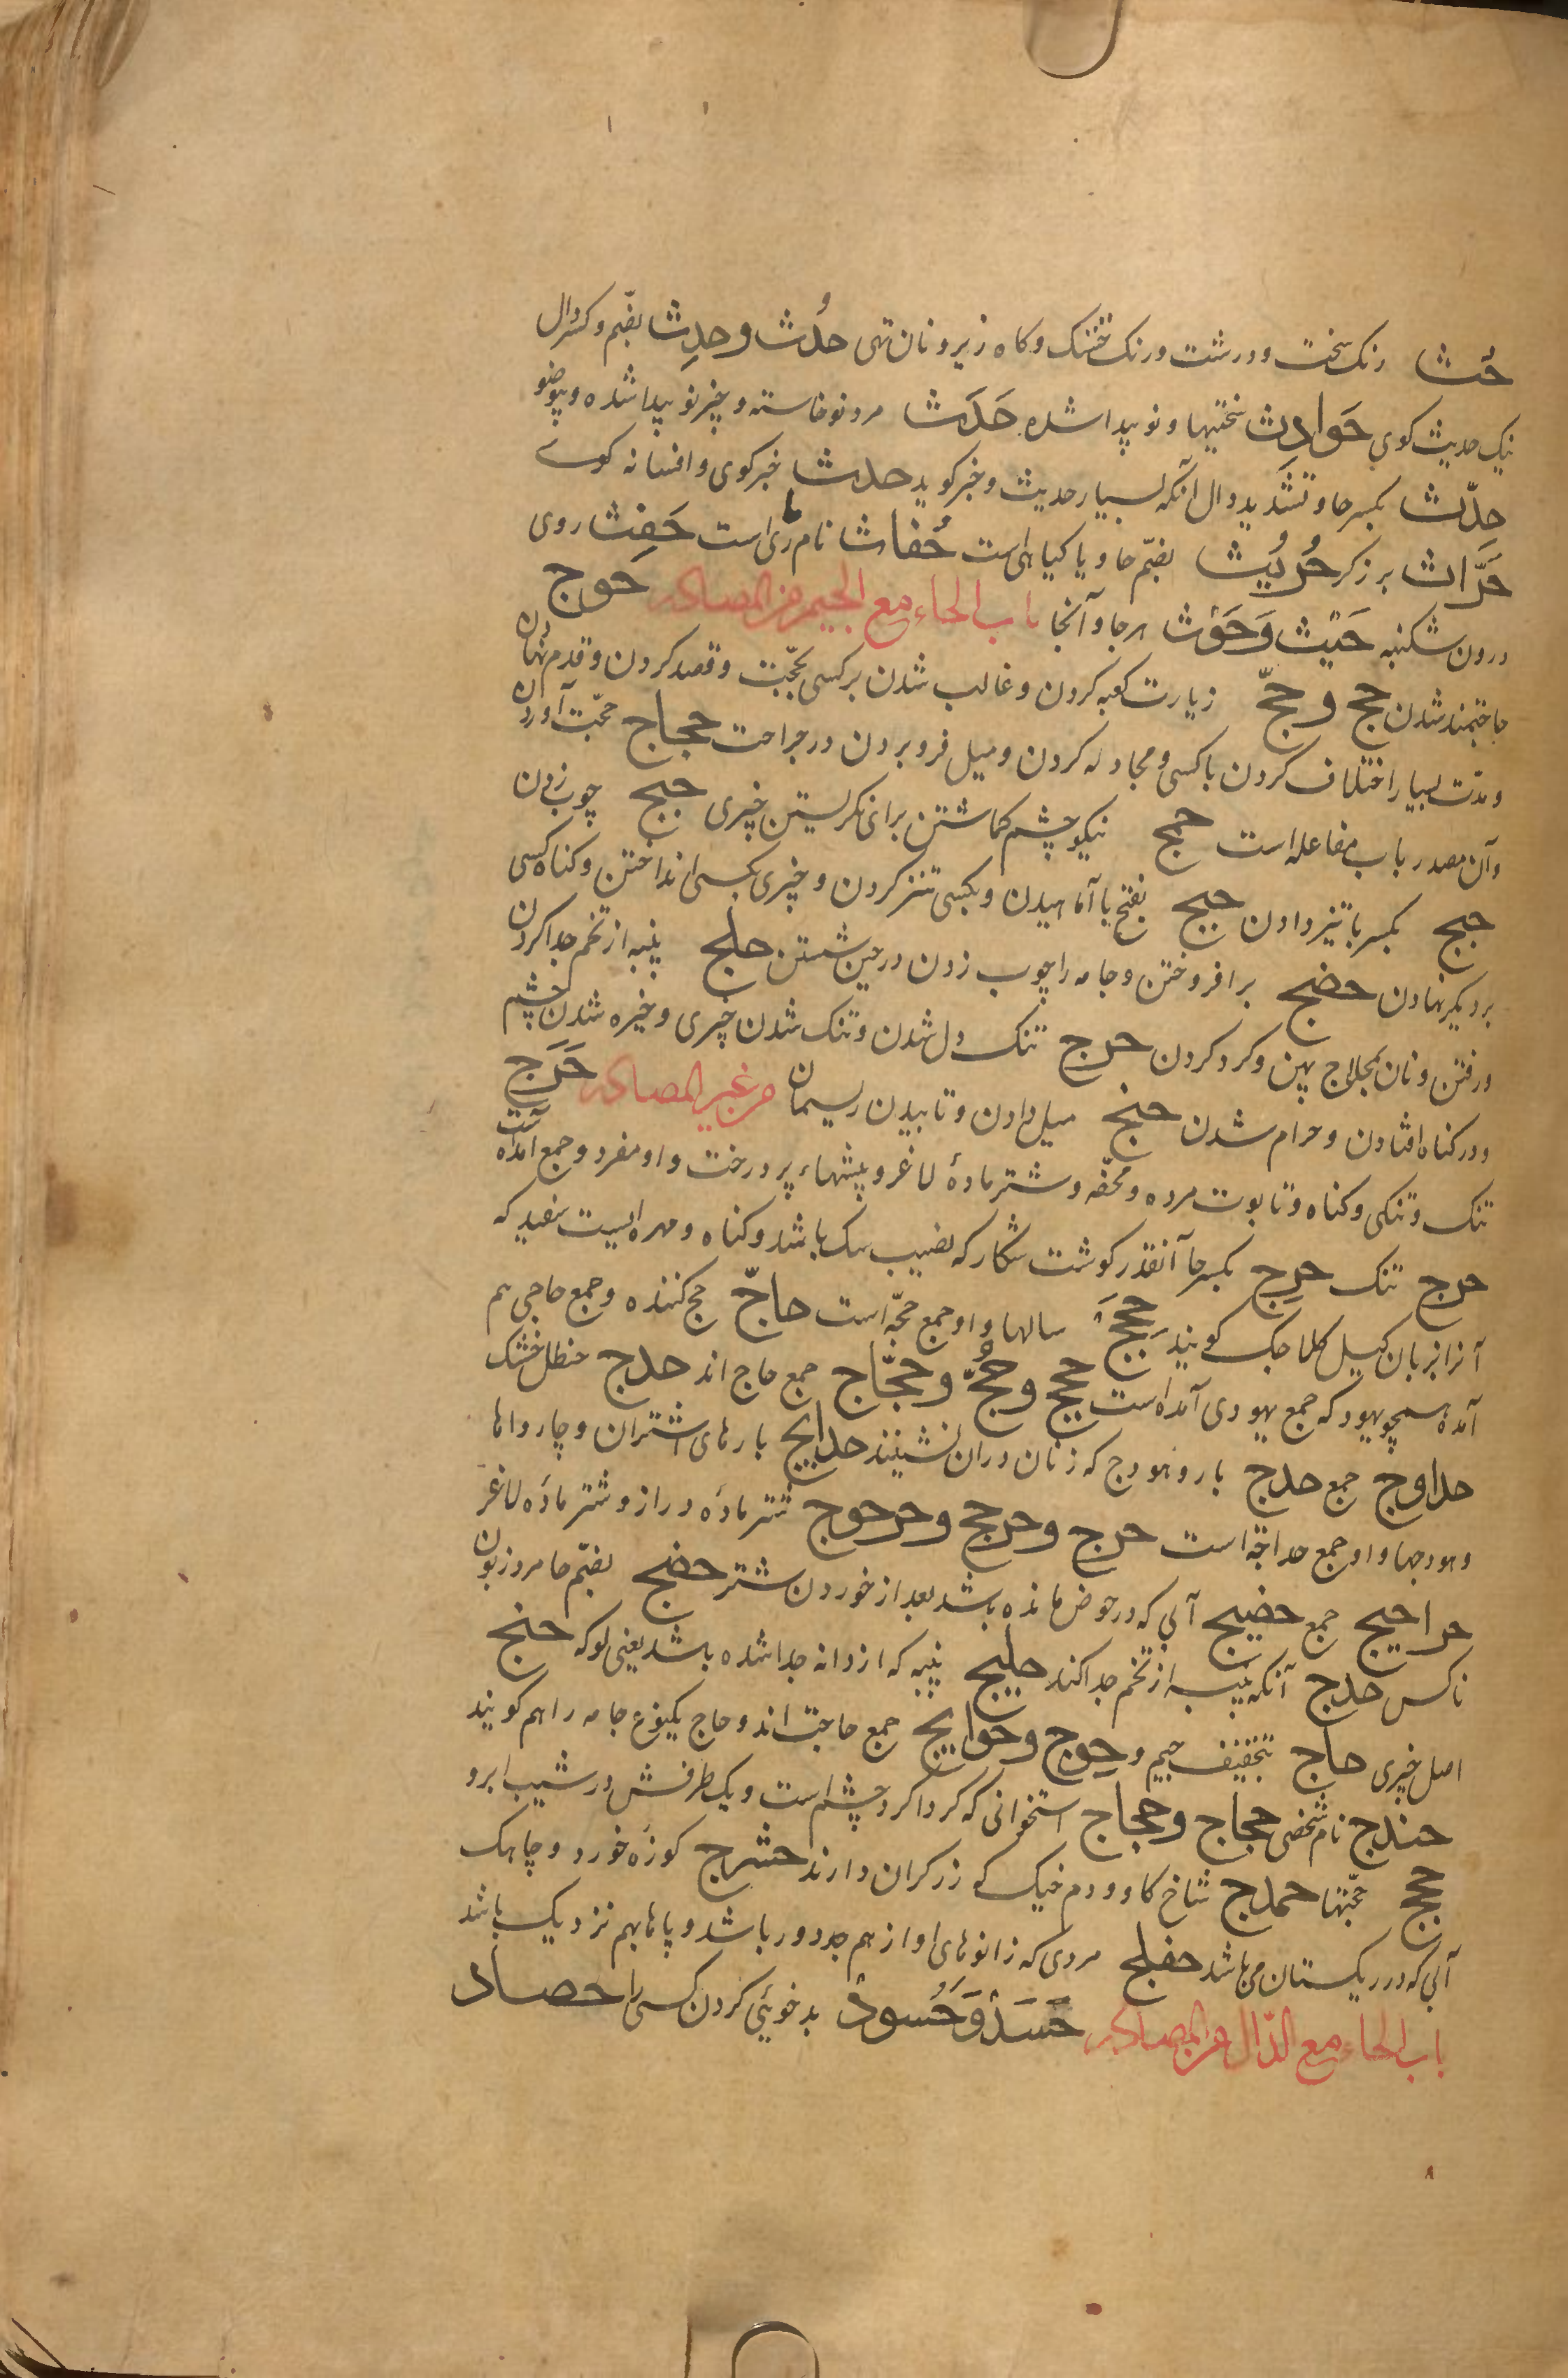 حُث رنک سخت و درشت و رنک خشک و کاه زیره و نان تهی حدُث و حدِث بضّم و کسر دال
نیک حدیث کوی حَوادِث سختیها و نو پیدا شده حَدَث مرد نوخاسته و چیز نو پیدا شده و بیوضو
حِدّث بکسر حا و تشدید دال آنکه بسیار حدیث و خبر کوید حدث خبر کوی و افسانه کوے
حَرَّاث برزکر حُرُیث بضّم حا و یا کیاهی است حُفاث نام ماری است حَفِث روی
درون شکنبه حَیْث وَحَوْث هر جا و آنجا باب الحاء مع الجیم من المصادر حوج
حاجتمند شدن حج و حجّ زیارت کعبه کردن و غالب شدن بر کسی بحجّت و قصد کردن و قدم نهادن
و مدّت بسیار اختلاف کردن با کسی و مجادله کردن و میل فرو بردن در جراحت حجاج حجّت آوردن
و آن مصدر باب مفاعله است حمج نیکو چشم کماشتن برای نکریستن چیزی حبج چوب زدن
حبج بکسر با تیز دادن حبج بفتح با آماهیدن و بکسی تنز کردن و چیزی بکسی انداختن و کناه کسی
بر دیکر نهادن حضج بر افروختن و جامه را چوب زدن در حین شستن حلج پنبه از تخم جدا کردن
و رفتن و نان بحلاج پهن و کرد کردن حرج تنک دل شدن و تنک شدن چیزی و خیره شدن چشم
و در کناه افتادن و حرام شدن حنج میل دادن و تابیدن ریسمان من غیر المصادر حَرَج
تنک و تنکی و کناه و تابوت مرده و محفّه و شتر مادهٔ لاغر و بیشهاء پر درخت و او مفرد و جمع آمده است
حرج تنک حرج بکسر حا آنقدر کوشت شکار که نصیب سک باشد و کناه و مهره ایست سفید که
آنرا بزبان کیل کلاجک کویند حِجَج سالها و او جمع حجّه است حاجّ حج کننده و جمع حاجی هم
آمده همچو یهود که جمع یهودی آمده است حجج و حُجّ و حجّاج جمع حاج اند حدج حنظل خشک
حداوج جمع حدج بار و هودج که زنان در ان نشینند حدایج بارهای اشتران و چارواها
و هودجها و او جمع حداجة است حرج و حرجج و حرجوج شتر مادهٔ دراز و شتر مادهٔ لاغر
حراجیج جمع حضیج آبی که در حوض مانده باشد بعد از خوردن شتر حضج بضّم حا مرد زبون
ناکس حلاج آنکه پنبه از تخم جدا کند حلیج پنبه که از دانه جدا شده باشد یعنی لوکه حنج
اصل چیزی حاج بتخفیف جیم و حِوج و حوایج جمع حاجت اند و حاج یکنوع جامه را هم کویند
حندج نام شخصی حجاج و حجاج استخوانی که کرداکرد چشم است و یک طرفش در شیب ابرو
حجج حجّتها حملاج شاخ کاو و دم خیک که زرکران دارند حشرج کوزهٔ خورد و چاهک
آبی که در ریکستان می باشد حفلج مردی که زانوهای او از هم جدا و دور باشد و پاها بهم نزدیک باشد
باب الحاء مع الدّال من المصادر حَسَدْ وَحُسودْ بدخوئی کردن کسی را حصاد